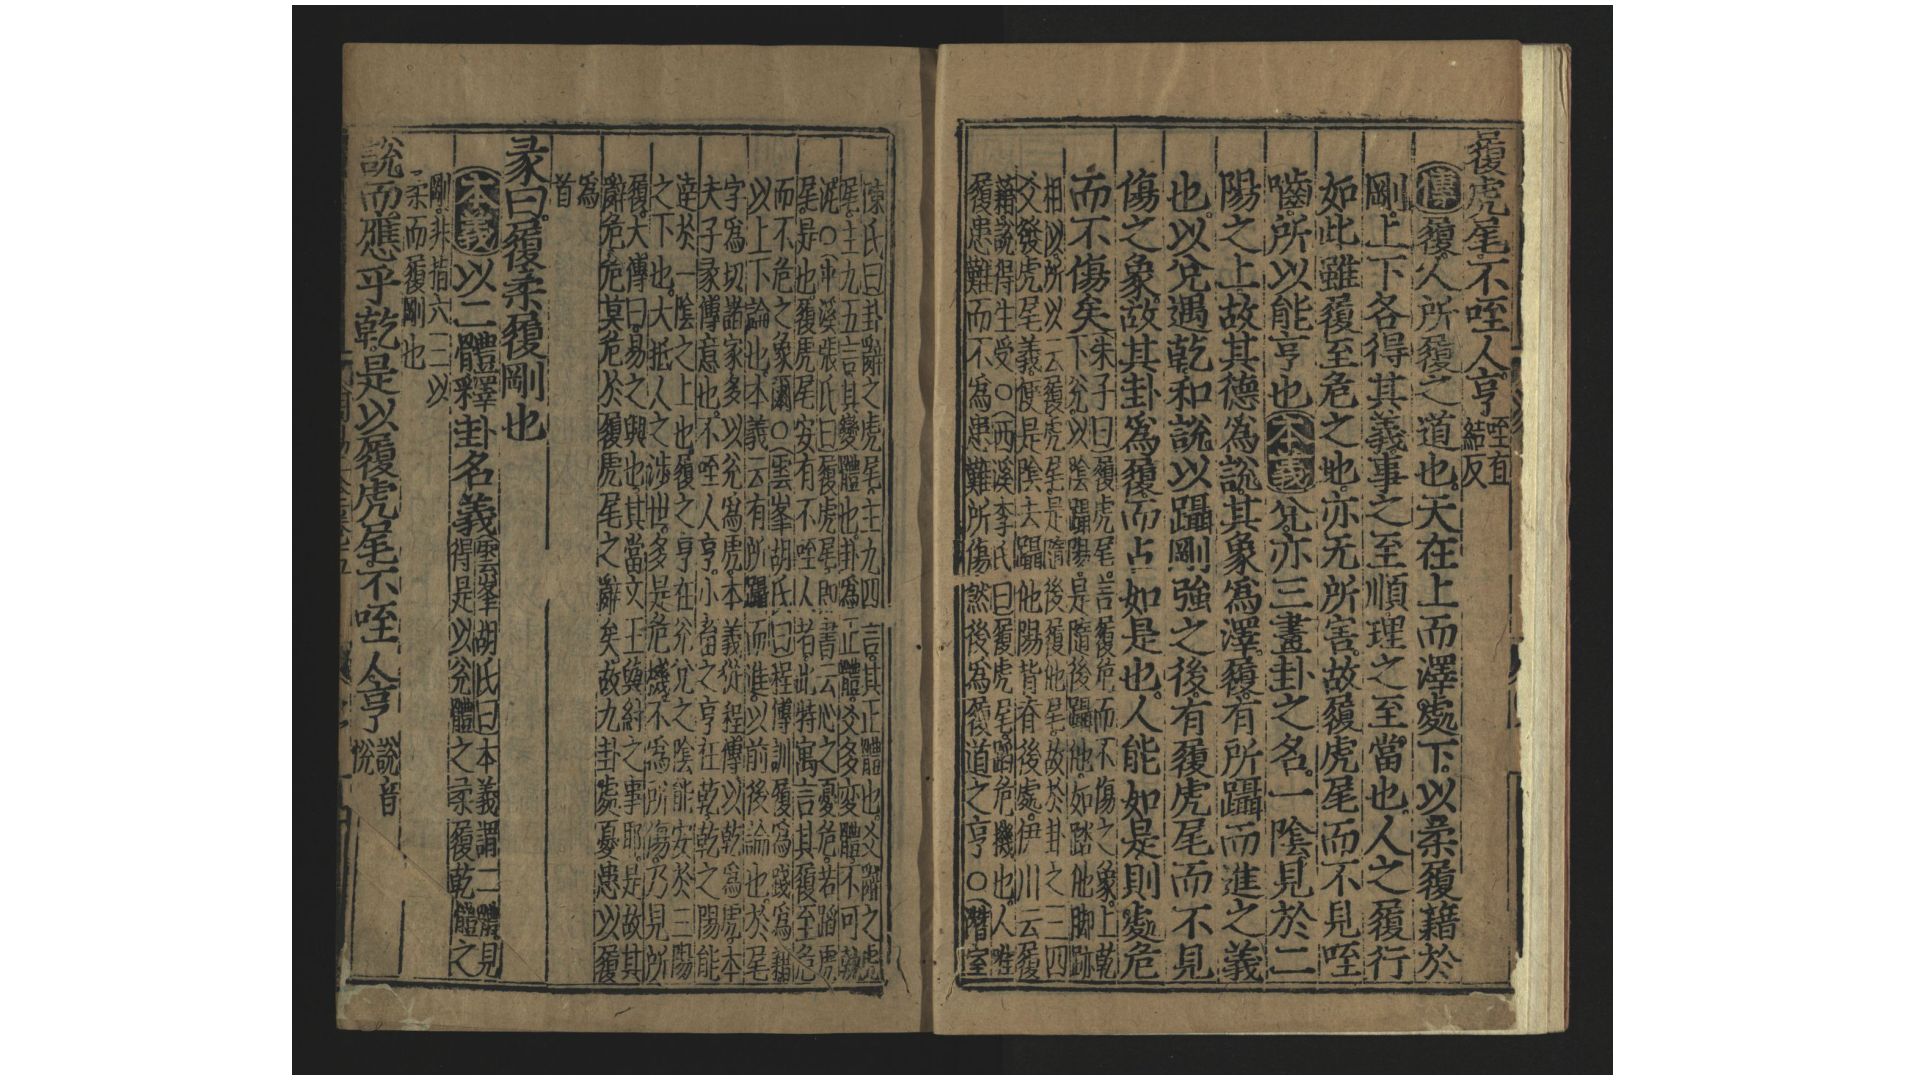 履虎尾不咥人亨咥直結反
傳履人所履之道也天在上而澤處下以柔履藉於
剛上下各得其義事之至順理之至當也人之履行
如此雖履至危之地亦无所害故履虎尾而不見咥
嚙所以能亨也本義兊亦三畫卦之名一陰見於二
陽之上故其德為說其象為澤履有所躡而進之義
也以兊遇乾和說以躡剛強之後有履虎尾而不見
傷之象故其卦為履而占如是也人能如是則處危
而不傷矣朱子曰履虎尾言履危而不傷之象上乾
下兊以陰躡陽是隨後躡他如踏他脚跡
相以所以云履虎尾是隨後履他尾故於卦之三四
爻發虎尾義便是陰去躡他陽背脊後處伊川云履
藉說得生受○西溪李氏曰履虎尾蹈危機也人唯
履患難而不為患難所傷然後為履道之亨○潛室
陳氏曰卦辭之虎尾主九四言其正體也爻辭之虎
尾主九五言其變體也卦為正體爻多変體不可執
泥○中溪張氏曰履虎尾即書云心之憂危若蹈虎
尾是也履虎尾安有不咥人者此特寓言其履至危
而不危之象爾○雲峯胡氏曰程傳訓履為踐為藉
以上下論也本義云有所躡而進以前後論也於尾
字為切諸家多以兊為虎本義從程傳以乾為虎本
夫子彖傳意也不咥人亨小畜之亨在乾乾之陽能
達於一陰之上也履之亨在兊兊之陰能安於三陽
之下也大抵人之涉世多是危機不為所傷乃見所
履大傳曰易之興也其當文王與紂之事耶是故其
辭危危莫危於履虎尾之辭矣故九卦處憂患以履
為
首
彖曰履柔履剛也
本義以二體釋卦名義雲峯胡氏曰本義謂二體見
得是以兊體之柔履乾體之
剛非指六三以
柔而履剛也
說而應乎乾是以履虎尾不咥人亨說音
悅